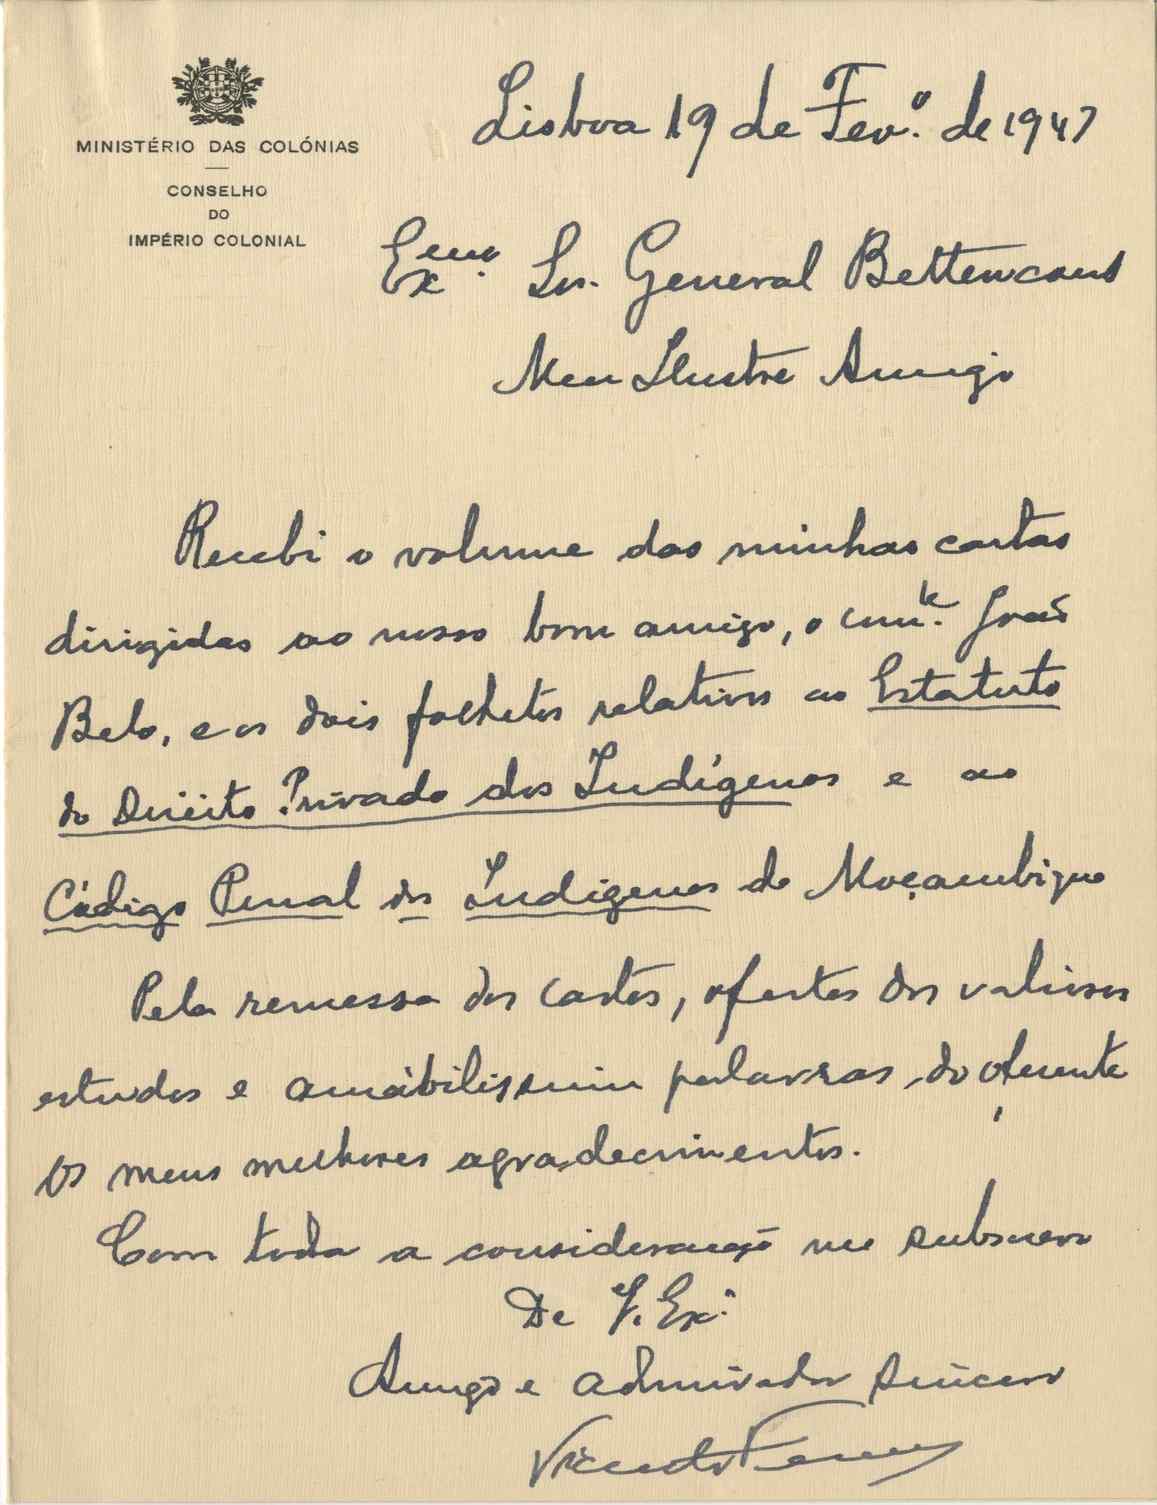 MINISTÉRIO DAS COLÓNIAS
CONSELHO
DO
IMPÉRIO COLONIAL
Lisboa 19 de Fev.º de 1947
Exmo. Sr. General Bettencourt
Meu Ilustre Amigo
Recebi o volume das minhas cartas
dirigidas ao nosso bom amigo, o João
Belo, e os dois folhetos relativos ao Estatuto
do Direito Privado dos Indígenas e ao
Código Penal dos Indígenas de Moçambique
Pela remessa das cartas, ofertas dos valiosos
estudos e amabilíssimas palavras, do oferente
os meus melhores agradecimentos.
Com toda a consideração me subscrevo
De V. Ex.ª
Amigo e admirador sincero
Vicente Ferreira